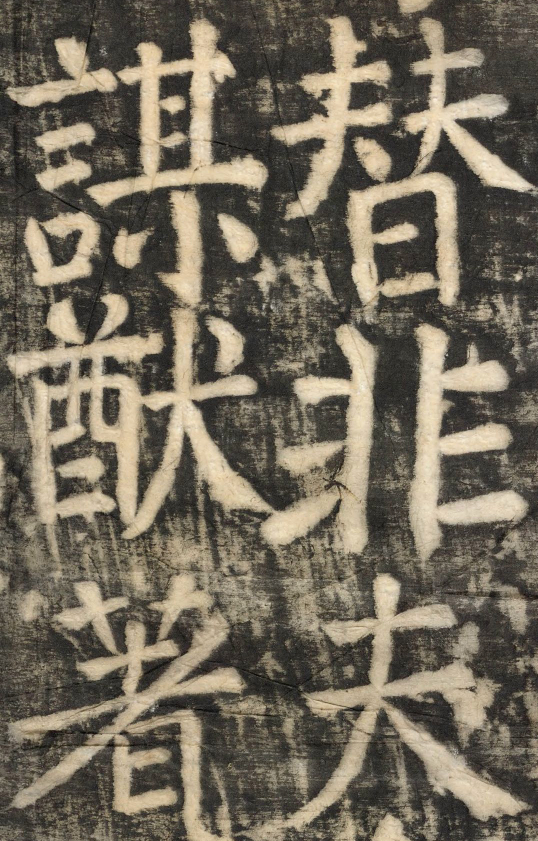 替非夫
謀猷著